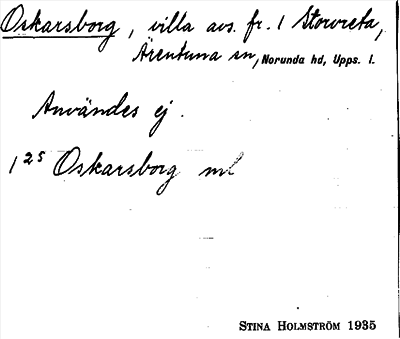 Oskarsborg, villa avs. fr. 1 Storvreta,
Ärentuna sn, Norunda hd, Upps. l.
Användes ej.
1²⁵ Oskarsborg ml
STINA HOLMSTRÖM 1935